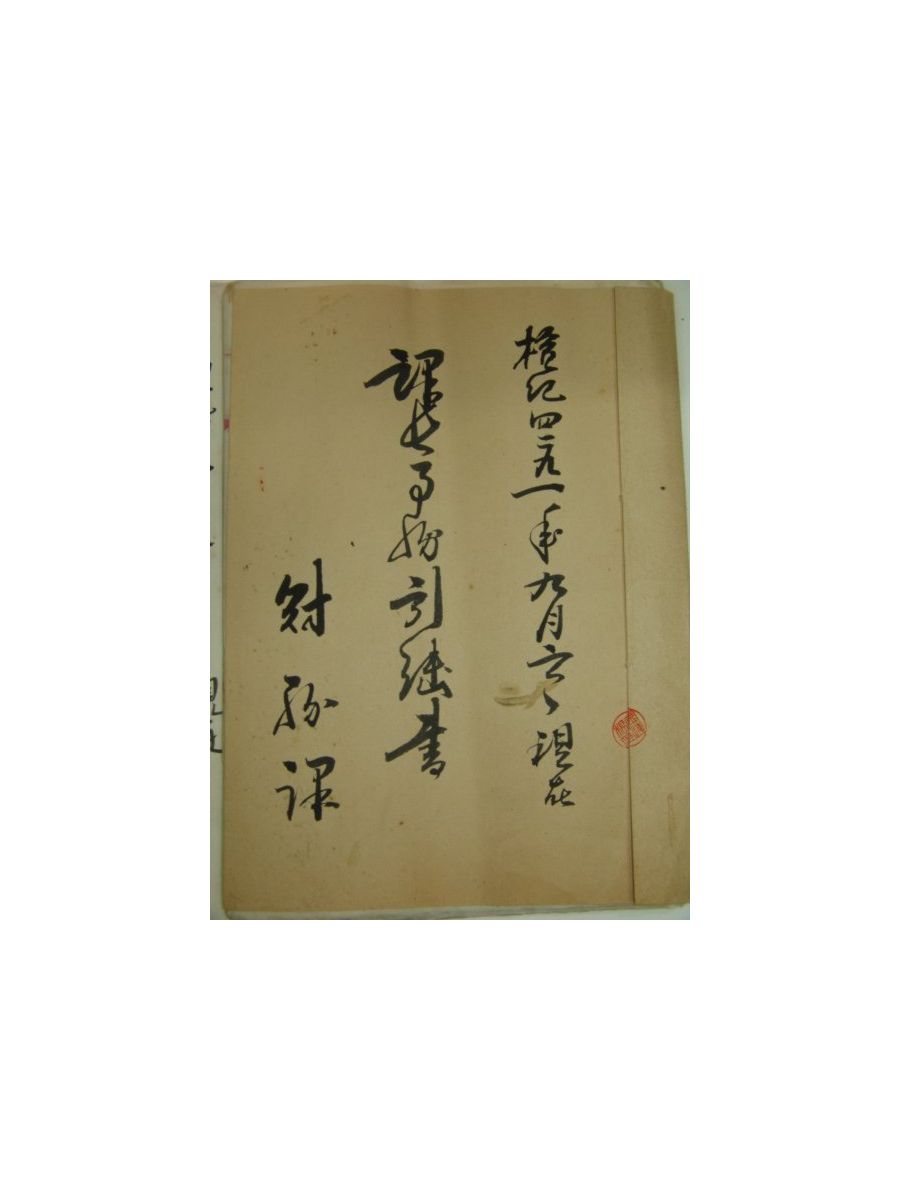 檀紀四二九一年九月 現在
課長事務引継書
財務課